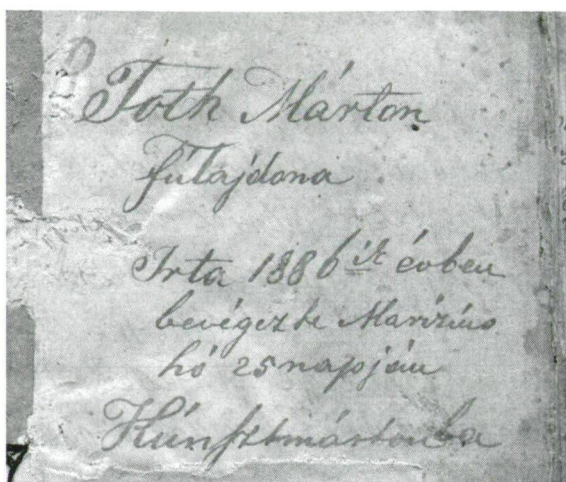 Toth Márton
fúlajdona
Irta 1886 ik évben
bevégezte Marczius
hó 25 napján
Kúnsztmártonba